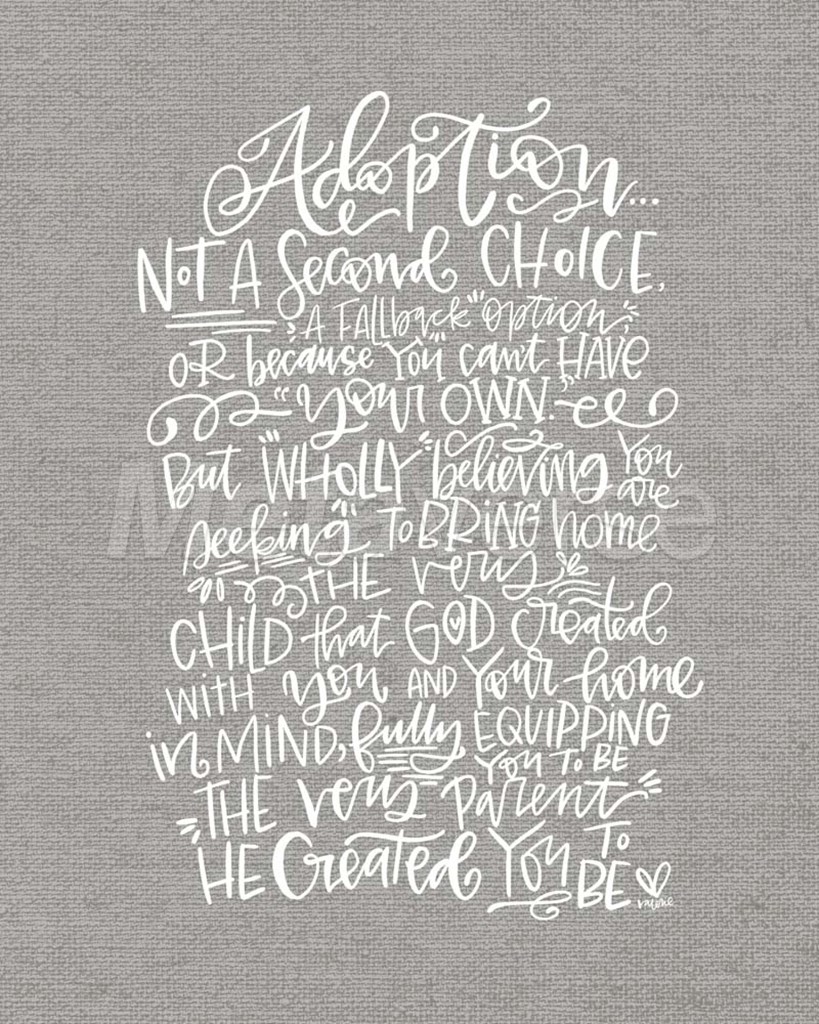 Adoption...
NOT A Second CHOICE,
"A FALLback "option,"
OR because "YOU" can't HAVE
"your OWN."
But "WHOLLY" believing You
are
seeking TO BRING home
THE very
CHILD that GOD created
WITH you AND Your home
in MIND, fully EQUIPPING
YOU TO BE
THE very parent
HE Created YOU TO
BE
valerie